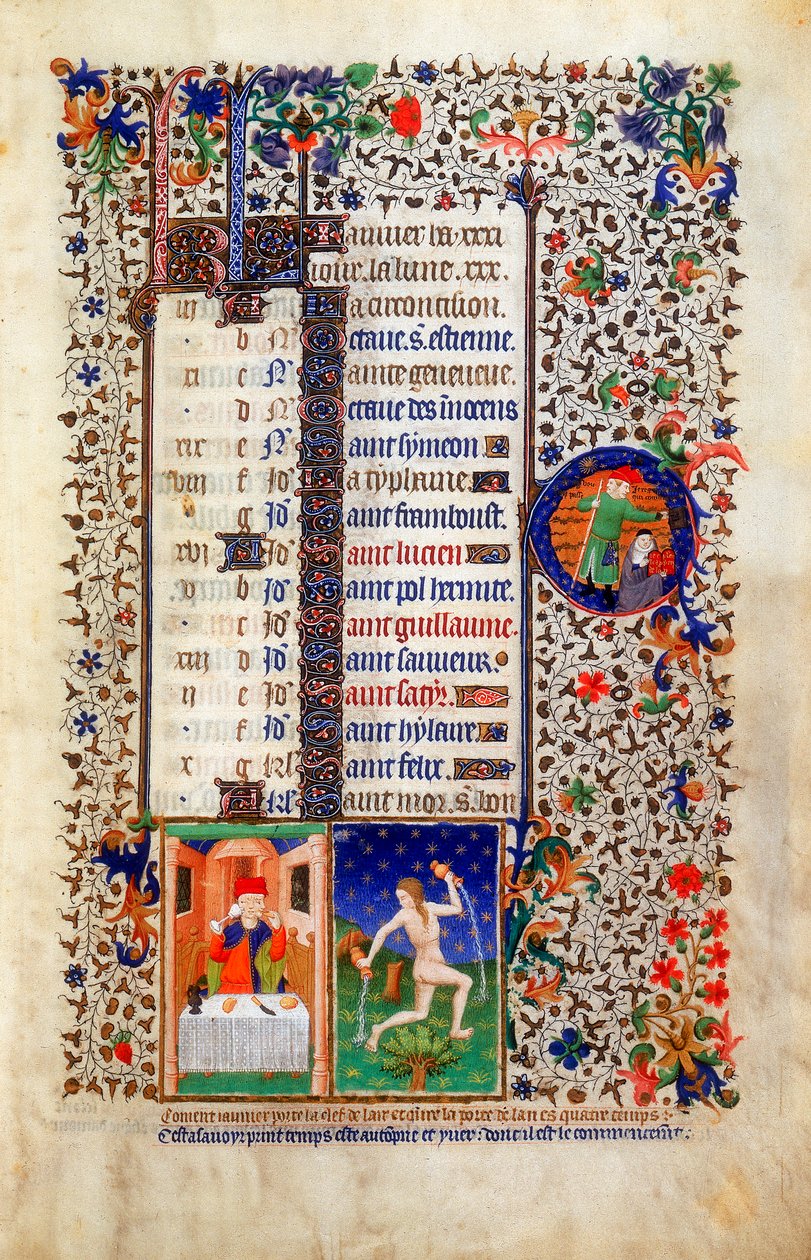 KL Januier ha .xxxi.
iour. la lune .xxx.
iii A La circoncision.
. b Nͦ Octaue. s̄. estienne.
xi c Nͦ Sainte geneuieue.
. d Nͦ Octaue des īnocens
xix e Nͦ Saint symeon.
viii f Idͦ La typhaine.
g Idͦ Saint framboust.
xvi A Idͦ Saint lucien
v b Idͦ Saint pol hermite.
. c Idͦ Saint guillaume.
xiii d Idͦ Saint sauueur.
ii e Idͦ Saint satyr.
. f Idͦ Saint hylaire
x g kl Saint felix.
. A kl Saint mor. s̄. bon
Coment ianuier porte la clef de lan et eūure la porte de lan es quatre temps
Cest asauoyr print temps este autōpne et yuer : dont il est le commencemēt.